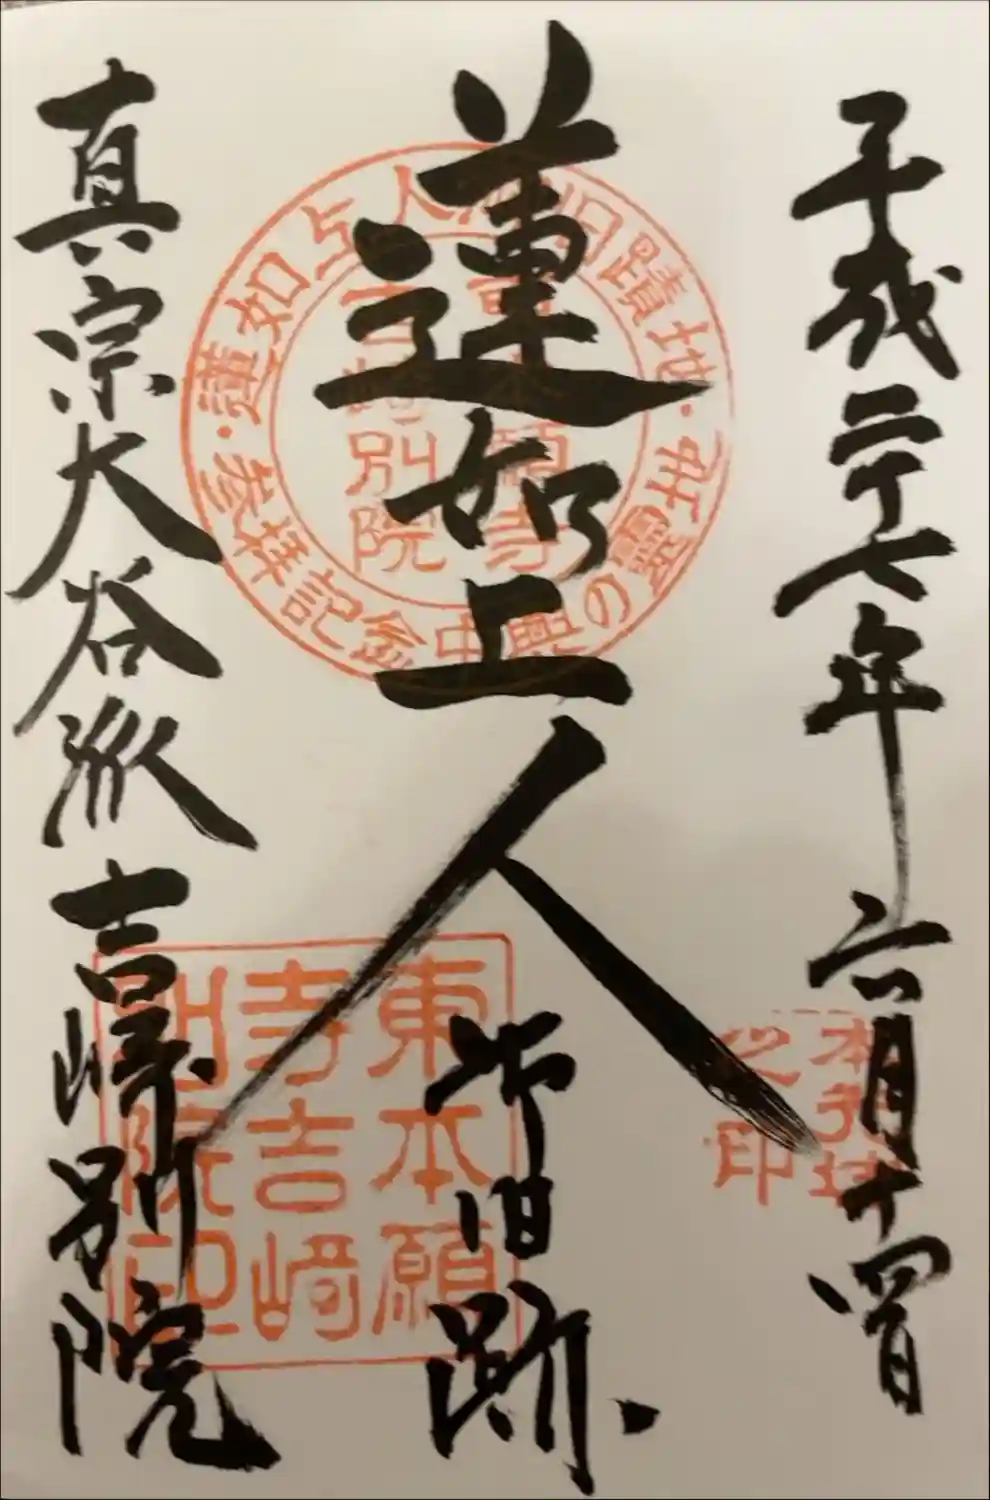 平成二十七年六月十四日
蓮如上人
御旧跡
真宗大谷派吉崎別院
蓮如上人御旧蹟地
中興の霊地
参拝記念
東本願寺
吉崎別院
東本願
寺吉崎
別院印
之印